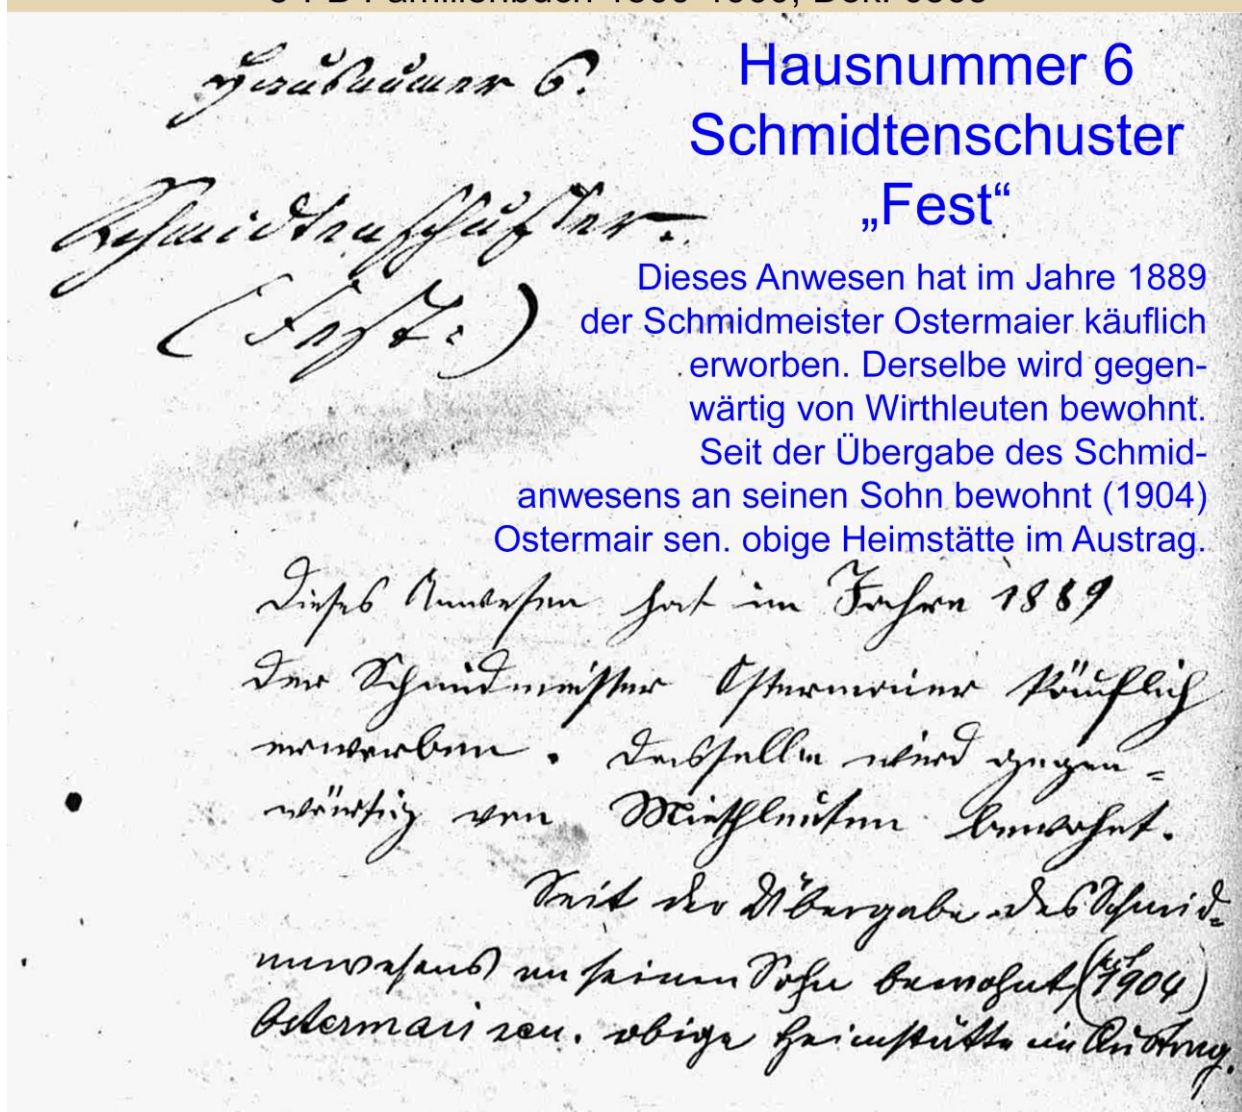 Hausnumer 6.
Hausnummer 6
Schmidtenschuster
„Fest“
Schmidtenschuster.
(Fest.)
Dieses Anwesen hat im Jahre 1889
der Schmidmeister Ostermaier käuflich
erworben. Derselbe wird gegen-
wärtig von Wirthleuten bewohnt.
Seit der Übergabe des Schmid-
anwesens an seinen Sohn bewohnt (1904)
Ostermair sen. obige Heimstätte im Austrag.
Dieses Anwesen hat im Jahre 1889
der Schmidmeister Ostermaier käuflich
erworben. Dasselbe wird gegen=
wärtig von Miethleuten bewohnt.
Seit der Übergabe des Schmid=
anwesens an seinen Sohn bewohnt (1904)
Ostermair sen. obige Heimstätte im Austrag.